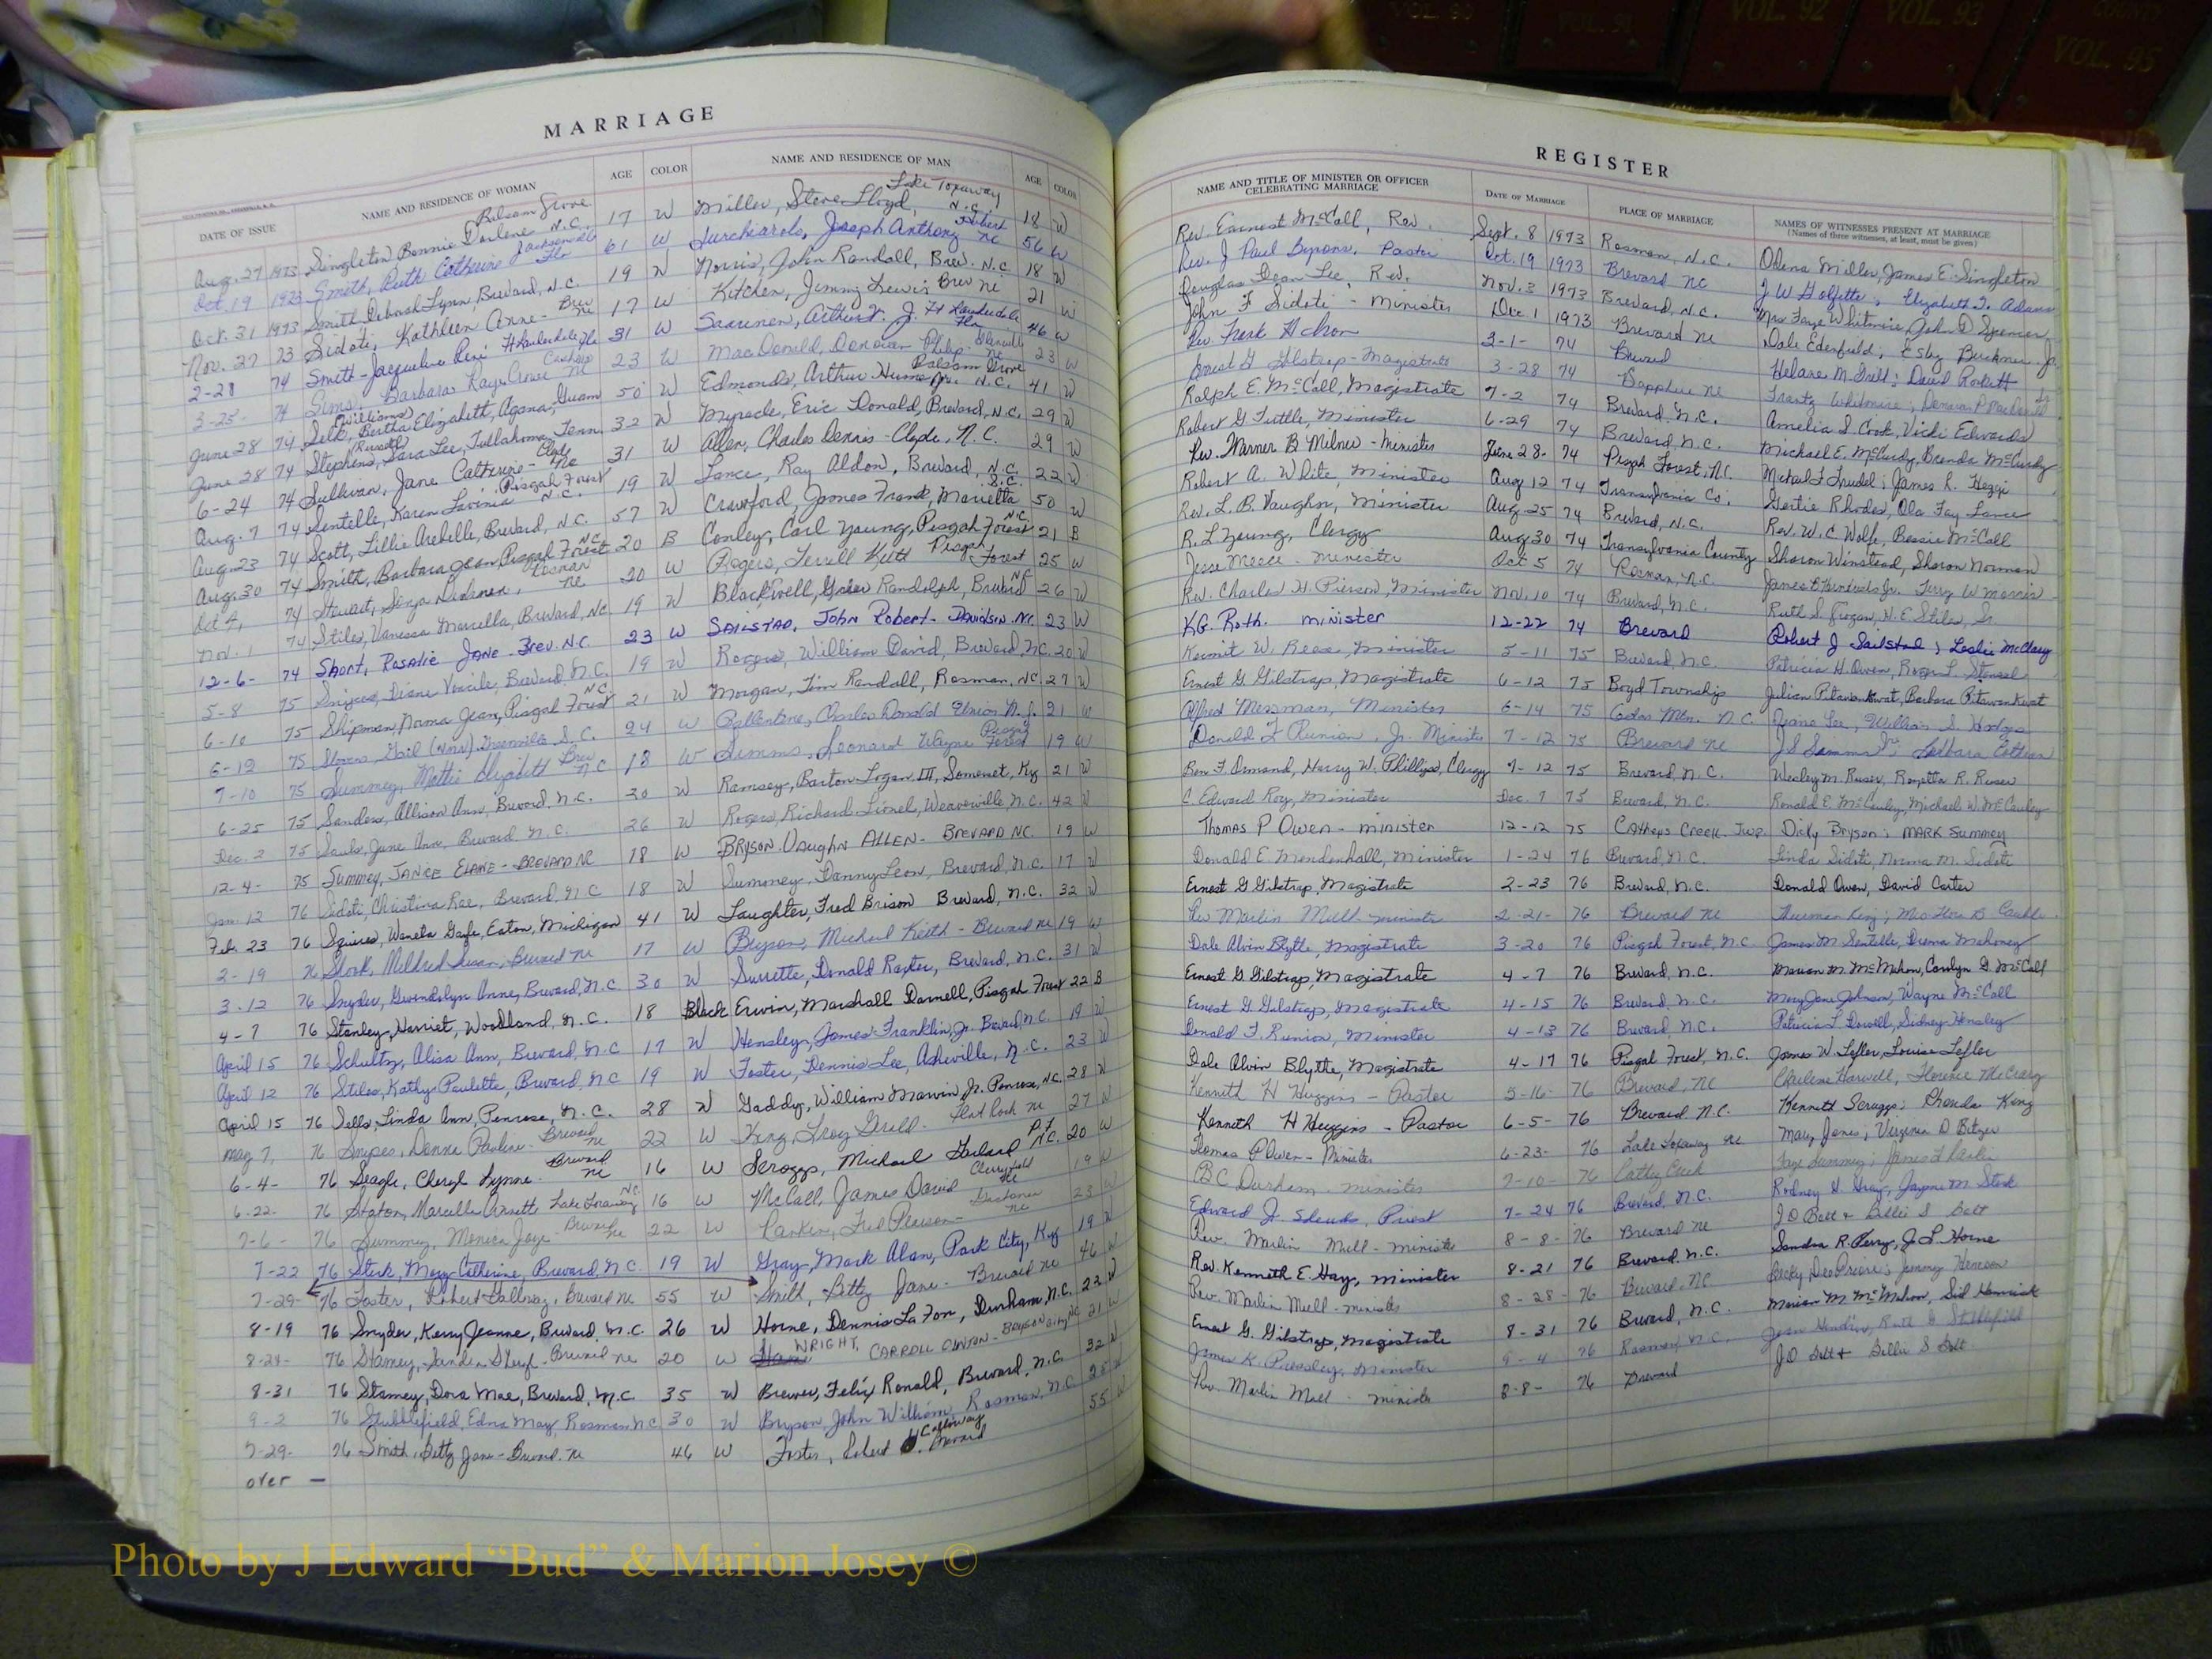 VOL. 90
VOL. 91
VOL. 92
VOL. 93
COUNTY
VOL. 95
MARRIAGE
DATE OF ISSUE
NAME AND RESIDENCE OF WOMAN
AGE
COLOR
NAME AND RESIDENCE OF MAN
AGE
COLOR
Aug. 27 1973 Singleton Bonnie Darlene Balsam Grove N.C. 17 W Miller, Steve Lloyd, Lake Toxaway N.C. 18 W
Oct. 19 1973 Smith, Ruth Catherine Jacksonville Fla 61 W Joseph Anthony NC 56 W
Oct. 31 1973 Smith Deborah Lynn, Brevard, N.C. 19 W Norris, John Randall, Brev. N.C. 18 W
Nov. 27 73 Sidoti, Kathleen Anne - Brev NC 17 W Kitchen, Jimmy Lewis Brev NC 21 W
2-28 74 Smith - Jacqueline 31 W Saarinen, Arthur J. Ft Lauderdale Fla 46 W
3-25- 74 Sims, Barbara Raye NC 23 W MacDonald, Donovan Philip NC 23 W
June 28 74 Selk, (Williams) Bertha Elizabeth, Agana, Guam 50 W Edmonds, Arthur Hume Jr. Balsam Grove N.C. 41 W
June 28 74 Stephens, (Russell) Sara Lee, Tullahoma, Tenn 32 W Myracle, Eric Donald, Brevard, N.C. 29 W
6-24 74 Sullivan, Jane Catherine - Clyde NC 31 W Allen, Charles Dennis - Clyde, N.C. 29 W
Aug. 7 74 Sentelle, Karen Lavinia Pisgah Forest N.C. 19 W Lance, Ray Aldon, Brevard, N.C. 22 W
Aug. 23 74 Scott, Lillie Arebelle, Brevard, N.C. 57 W Crawford, James Frank, Marietta S.C. 50 W
Aug. 30 74 Smith, Barbara Jean, Pisgah Forest N.C. 20 B Conley, Carl Young, Pisgah Forest N.C. 21 B
Oct 4, 74 Stewart, Rosman NC 20 W Rogers, Terrell Keith Pisgah Forest 25 W
Nov. 1 74 Stiles, Vanessa Marcella, Brevard, NC 19 W Blackwell, Randolph, Brevard NC 26 W
12-6- 74 Short, Rosalie Jane - Brev. N.C. 23 W Sailstad, John Robert - Davidson NC 23 W
5-8 75 Brevard N.C. 19 W Rogers, William David, Brevard, N.C. 20 W
6-10 75 Shipman, Norma Jean, Pisgah Forest N.C. 21 W Morgan, Tim Randall, Rosman, NC 27 W
6-12 75 Gail (NMN) Greenville S.C. 24 W Ballentine, Charles Donald Union N.J. 21 W
7-10 75 Summey, Mattie Elizabeth Brev NC 18 W Simms, Leonard Wayne Pisgah Forest 19 W
6-25 75 Sanders, Allison Ann, Brevard, N.C. 20 W Ramsey, Barton Logan III, Somerset, Ky 21 W
Dec. 2 75 June Ann, Brevard N.C. 26 W Rogers, Richard Lionel, Weaverville, N.C. 42 W
12-4- 75 Summey, Janice Elane - Brevard NC 18 W Bryson Vaughn Allen - Brevard NC 19 W
Jan. 12 76 Sidoti, Christina Rae, Brevard, N.C 18 W Sumney, Danny Leon, Brevard, N.C. 17 W
Feb. 23 76 Squires, Waneta Gayle, Eaton, Michigan 41 W Laughter, Fred Brison Brevard, N.C. 32 W
2-19 76 Mildred Susan, Brevard NC 17 W Bryson, Michael Keith - Brevard NC 19 W
3-12 76 Snyder, Gwendolyn Anne, Brevard, N.C 30 W Surrette, Donald Raxter, Brevard, N.C. 31 W
4-7 76 Stanley, Harriet, Woodland, N.C. 18 Black Erwin, Marshall Darnell, Pisgah Forest 22 B
April 15 76 Schultz, Alisa Ann, Brevard, N.C 17 W Hensley, James Franklin, Jr. Brevard, N.C. 19 W
April 12 76 Stiles, Kathy Paulette, Brevard, N.C 19 W Foster, Dennis Lee, Asheville, N.C. 23 W
April 15 76 Sells, Linda Ann, Penrose, N.C. 28 W Gaddy, William Marvin Jr. Penrose, N.C. 28 W
May 7, 76 Snipes, Donna Pauline - Brevard NC 22 W King, Troy Flat Rock NC 27 W
6-4- 76 Seagle, Cheryl Lynne. Brevard NC 16 W Scroggs, Michael P.F. N.C. 20 W
6-22- 76 Staton, Marcella Annette Lake Toxaway N.C. 16 W McCall, James David Cherryfield NC 19 W
7-6- 76 Summey, Monica Jaye Brevard NC 22 W Fred Pierson - NC 23 W
7-22 76 Sterk, Mary Catherine, Brevard, N.C. 19 W Gray, Mark Alan, Park City, Ky 19 W
7-29- 76 Foster, Robert Galloway, Brevard NC 55 W Smith, Betty Jane - Brevard NC 46 W
8-19 76 Snyder, Kerry Jeanne, Brevard, N.C. 26 W Horne, Dennis LaFon, Durham, N.C. 22 W
8-24- 76 Stamey, Sandra - Brevard NC 20 W Wright, Carroll - Bryson City NC 21 W
8-31 76 Stamey, Dora Mae, Brevard, N.C. 35 W Brewer, Felix Ronald, Brevard, N.C. 32 W
9-2 76 Stubblefield, Edna May, Rosman N.C 30 W Bryson, John William, Rosman, N.C. W
7-29- 76 Smith, Betty Jane - Brevard. NC 46 W Foster, Robert Galloway Brevard 55 W
over —
REGISTER
NAME AND TITLE OF MINISTER OR OFFICER
CELEBRATING MARRIAGE
DATE OF MARRIAGE
PLACE OF MARRIAGE
NAMES OF WITNESSES PRESENT AT MARRIAGE
(Names of three witnesses, at least, must be given)
Rev. Earnest McCall, Rev. Sept. 8 1973 Rosman, N.C. Odena Miller, James E. Singleton
Rev. J Paul Byrons, Pastor Oct. 19 1973 Brevard NC J W Elizabeth Adams
Douglas Dean Lee, Rev. Nov. 3 1973 Brevard, N.C. Mrs Faye Whitmire, John D Spencer
John F Sidoti - Minister Dec. 1 1973 Brevard NC Dale Edenfield; Esby Jr.
Rev. Frank 3-1- 74 Brevard Helane M. David
Ernest G Gilstrap - Magistrate 3-28 74 Sapphire NC Whitmire; Donovan P MacDonald
Ralph E. McCall, Magistrate 7-2 74 Brevard, N.C. Amelia S. Cook, Vicki Edwards
Robert G Tuttle, Minister 6-29 74 Brevard N.C. Michael E. McCurdy, Brenda McCurdy
Rev. Warner B Milner - Minister June 28- 74 Pisgah Forest, N.C. Michael F Trudel; James R. Heggi
Robert A. White, Minister Aug 12 74 Transylvania Co. Gertie Rhodes, Ola Fay Lance
Rev. L. B. Vaughn, Minister Aug. 25 74 Brevard, N.C. Rev. W. C Wolfe, Bessie McCall
R. L Young, Clergy Aug 30 74 Transylvania County Sharon Winstead, Sharon Norman
Jesse - Minister Oct 5 74 Rosman, N.C. James Jr. Terry W Morris
Rev. Charles H. Pierson, Minister Nov. 10 74 Brevard, N.C. Ruth S. Grogan, N.E. Stiles, Sr.
K.G. Roth. Minister 12-22 74 Brevard Robert J Sailstad; Leslie McClary
Kermit W. Reese, Minister 5-11 75 Brevard, N.C. Patricia H. Owen, Roger L.
Ernest G. Gilstrap, Magistrate 6-12 75 Boyd Township Julian Pitavankivat, Barbara Pitavankivat
Alfred Messman, Minister 6-14 75 Cedar Mtn. N.C. Jeane Lee, William S. Hodges
Donald F Runion, Jr. Minister 7-12 75 Brevard NC
Ron F. Ormand, Harry W. Phillips, Clergy 7-12 75 Brevard, N.C. Wesley M. Ruser, Rozetta R. Ruser
C. Edward Roy, Minister Dec. 7 75 Brevard, N.C. Ronald E. McCauley, Michael W. McCauley
Thomas P Owen - Minister 12-12 75 Catheys Creek Twp. Dicky Bryson; Mark Summey
Donald E Mendenhall, Minister 1-24 76 Brevard, N.C. Linda Sidoti, Norma M. Sidoti
Ernest G Gilstrap, Magistrate 2-23 76 Brevard, N.C. Donald Owen, David Carter
Rev Marlin Mull - Minister 2-21- 76 Brevard NC Thurman King;
Dale Alvin Blythe, Magistrate 3-20 76 Pisgah Forest, N.C James M. Sentelle, Drema Mahoney
Ernest G. Gilstrap, Magistrate 4-7 76 Brevard, N.C. Marian M. McMahon, Carolyn G. McCall
Ernest G. Gilstrap, Magistrate 4-15 76 Brevard, N.C. Mary Jane Johnson, Wayne McCall
Donald F. Runion, Minister 4-13 76 Brevard, N.C. Patricia L. Dowell, Sidney Hensley
Dale Alvin Blythe, Magistrate 4-17 76 Pisgah Forest, N.C. James W. Lefler, Louise Lefler
Kenneth H Huggins - Pastor 5-16- 76 Brevard, NC Charlene Harwell, Florence McCrary
Kenneth H Huggins - Pastor 6-5- 76 Brevard N.C. Kenneth Scruggs; Rhonda King
Thomas P Owen - Minister 6-23- 76 Lake Toxaway NC Mary Jones; Virginia D Bitzer
B C Durham - Minister 7-10- 76 Cathey Creek Faye Summey; James
Edward J. Priest 7-24 76 Brevard N.C. Rodney H. Gray, Jayne M. Sterk
Rev. Marlin Mull - Minister 8-8- 76 Brevard NC J D Batt & Billie S Batt
Rev. Kenneth E. Hay, Minister 8-21 76 Brevard. N.C. Sandra R. Perry, J. P. Horne
Rev. Marlin Mull - Minister 8-28- 76 Brevard. NC Becky Jimmy Henson
Ernest G. Gilstrap, Magistrate 8-31 76 Brevard, N.C. Marian M. McMahon, Sid
James K. Pressley, Minister 9-4 76 Rosman, N.C.
Rev. Marlin Mull - Minister 8-8- 76 Brevard J D Batt & Billie S Batt
Photo by J Edward “Bud” & Marion Josey ©